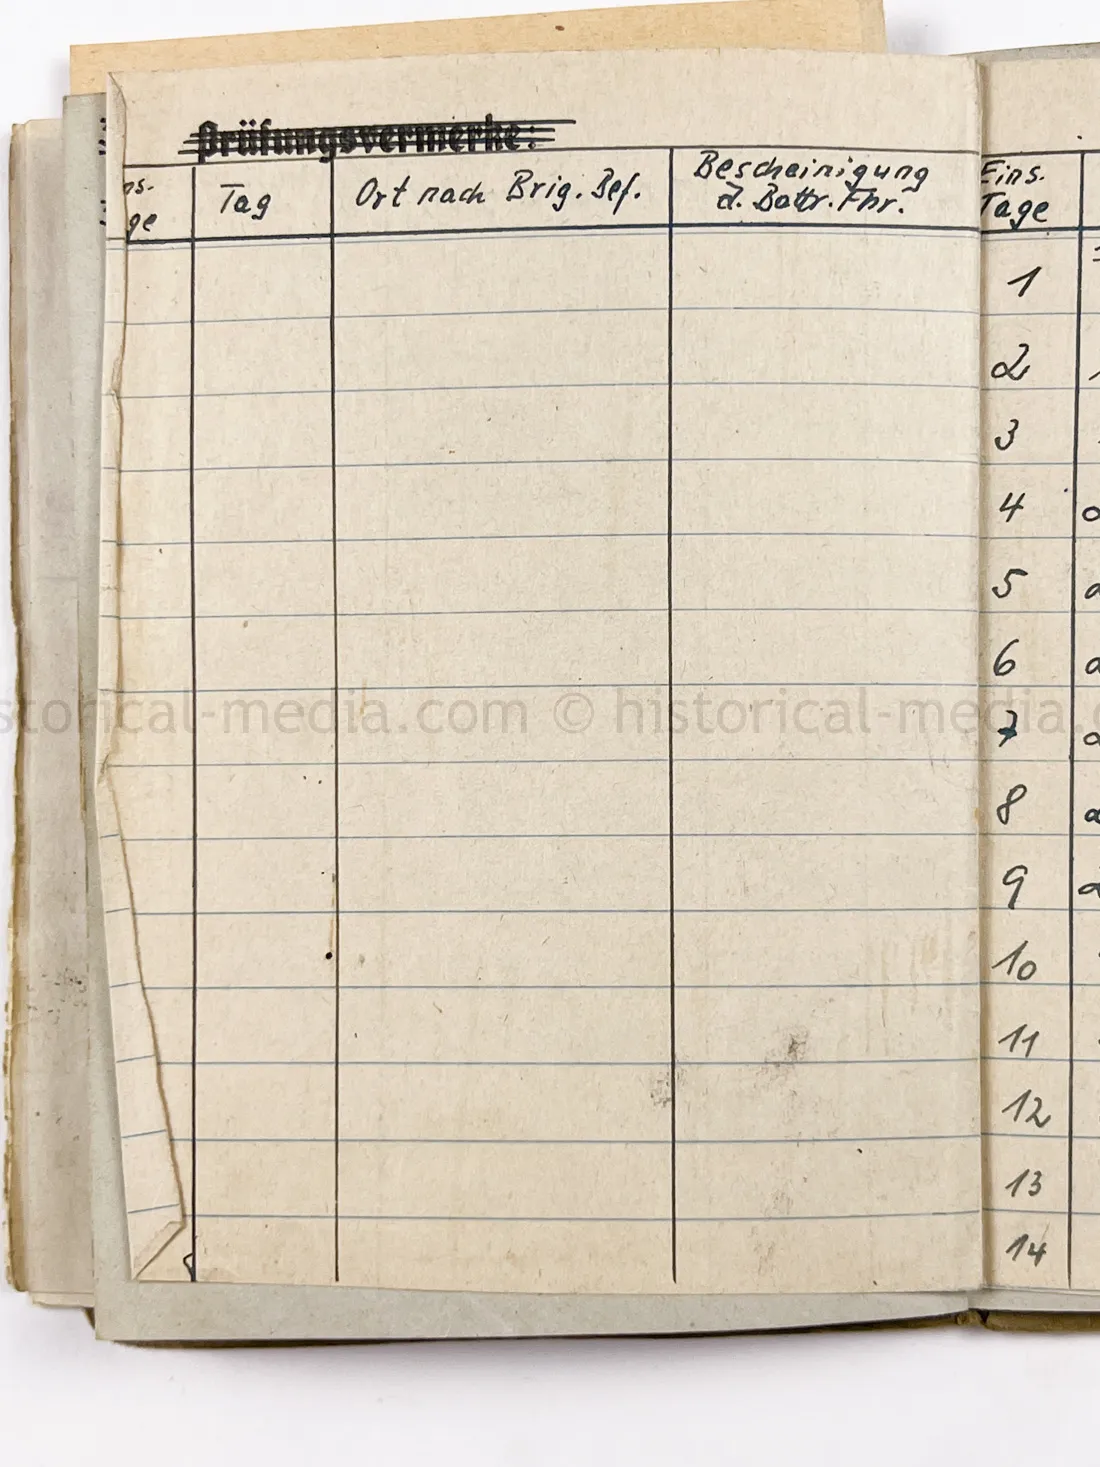 Prüfungsvermerke:
ns. Tag Ort nach Brig. Bef. Bescheinigung Eins.
ge d. Battr. Fhr. Tage
1
2
3
4
5
6
historical-media.com © historical-media.
7
8
9
10
11
12
13
14